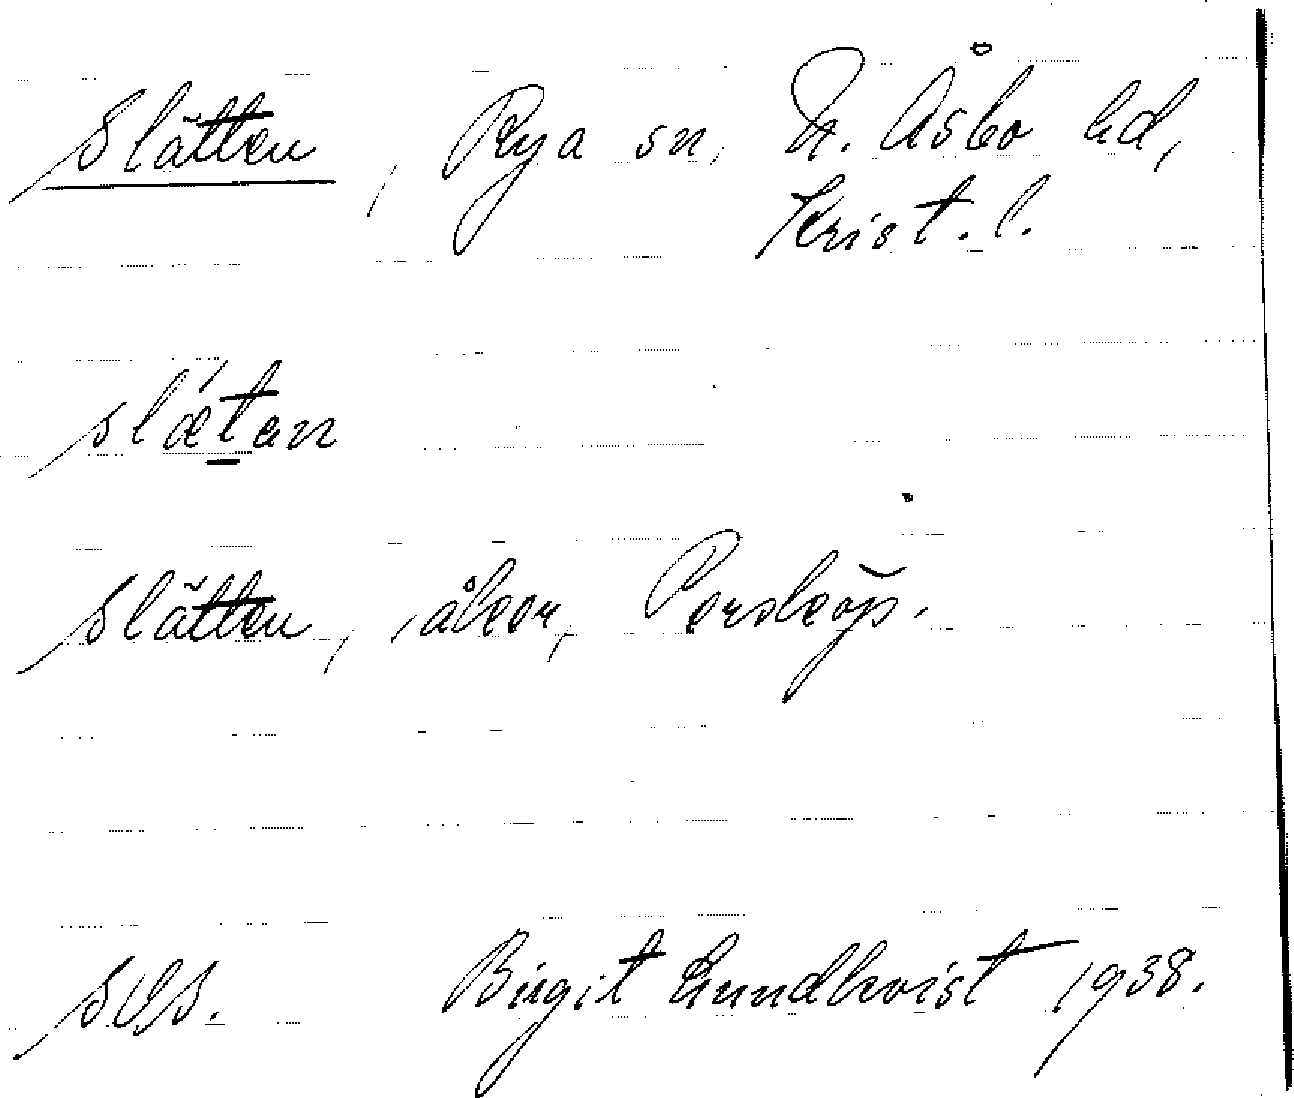 Slätten, Rya sn, N. Åsbo hd,
Krist. l.
slǽtan
Slätten, åker, Persköp.
Birgit Lundkvist 1938.